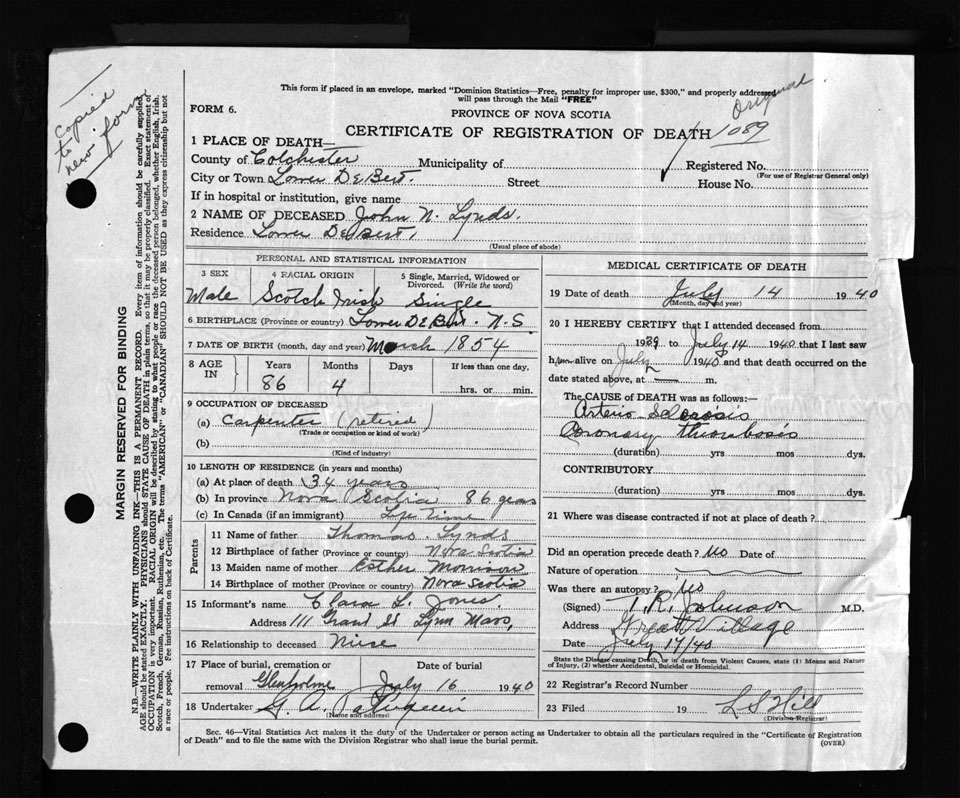 This form if placed in an envelope, marked "Dominion Statistics—Free, penalty for improper use, $300," and properly addressed
will pass through the Mail "FREE"
Original.
FORM 6.
PROVINCE OF NOVA SCOTIA
CERTIFICATE OF REGISTRATION OF DEATH 1089
copied to new form
1 PLACE OF DEATH—
County of Colchester Municipality of Registered No.
(For use of Registrar General only)
City or Town Lower DeBert. Street House No.
If in hospital or institution, give name
2 NAME OF DECEASED John N. Lynds.
Residence Lower DeBert,
(Usual place of abode)
PERSONAL AND STATISTICAL INFORMATION
3 SEX 4 RACIAL ORIGIN 5 Single, Married, Widowed or Divorced. (Write the word)
Male Scotch Irish Single
6 BIRTHPLACE (Province or country) Lower DeBert. N.S.
7 DATE OF BIRTH (month, day and year) March 1854
8 AGE IN Years Months Days If less than one day,
86 4 hrs. or min.
9 OCCUPATION OF DECEASED
(a) Carpenter (retired)
(Trade or occupation or kind of work)
(b)
(Kind of industry)
10 LENGTH OF RESIDENCE (in years and months)
(a) At place of death 34 years
(b) In province Nova Scotia 86 years
(c) In Canada (if an immigrant) Life Time
Parents
11 Name of father Thomas Lynds
12 Birthplace of father (Province or country) Nova Scotia
13 Maiden name of mother Esther Morrison
14 Birthplace of mother (Province or country) Nova Scotia
15 Informant's name Clara L. Jones.
Address 111 Grand St Lynn Mass,
16 Relationship to deceased Niece
17 Place of burial, cremation or removal Glenholme Date of burial July 16 1940
18 Undertaker G. A.
(Name and address)
MEDICAL CERTIFICATE OF DEATH
19 Date of death July 14 1940
(Month, day and year)
20 I HEREBY CERTIFY that I attended deceased from
1939 to July 14 1940 that I last saw
him alive on July 1940 and that death occurred on the
date stated above, at m.
The CAUSE OF DEATH was as follows:
Arterio Sclerosis
Coronary thrombosis
(duration) yrs mos dys.
CONTRIBUTORY
(duration) yrs. mos. dys.
21 Where was disease contracted if not at place of death?
Did an operation precede death? No Date of
Nature of operation
Was there an autopsy? No
(Signed) T. R. Johnson M.D.
Address Great Village
Date July 14/40
State the Disease causing Death, or in death from Violent Causes, state (1) Means and Nature of Injury, (2) whether Accidental, Suicidal or Homicidal.
22 Registrar's Record Number
23 Filed 19 L S Hill
(Division Registrar)
Sec. 46—Vital Statistics Act makes it the duty of the Undertaker or person acting as Undertaker to obtain all the particulars required in the "Certificate of Registration
of Death" and to file the same with the Division Registrar who shall issue the burial permit.
(OVER)
MARGIN RESERVED FOR BINDING
N.B.—WRITE PLAINLY WITH UNFADING INK—THIS IS A PERMANENT RECORD. Every item of information should be carefully supplied.
AGE should be stated EXACTLY. PHYSICIANS should STATE CAUSE OF DEATH in plain terms, so that it may be properly classified. Exact statement of
OCCUPATION is very important. RACIAL ORIGIN will be described by stating to what people or race the deceased person belonged, whether English, Irish,
Scotch, French, German, Russian, Ruthenian, etc. The terms "AMERICAN" or "CANADIAN" SHOULD NOT BE USED as they express citizenship but not
a race or people. Fee instructions on back of Certificate.